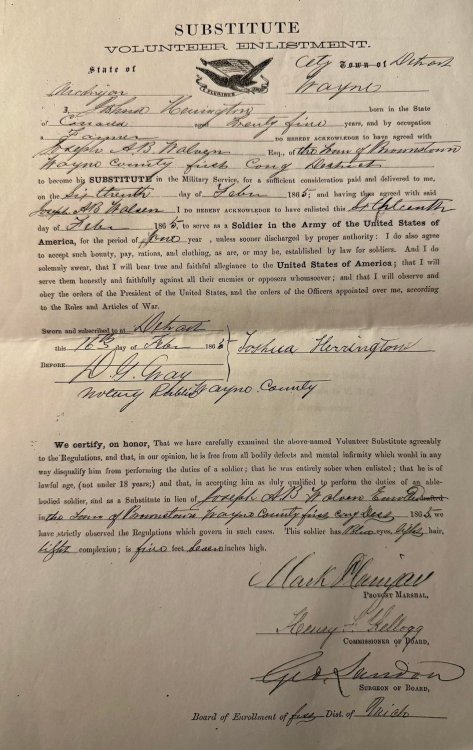 SUBSTITUTE
VOLUNTEER ENLISTMENT.
State of City Town of Detroit
Michigan Wayne
I, Joshua Herrington born in the State
of Canada aged Twenty five years, and by occupation
a Farmer Do HEREBY ACKNOWLEDGE to have agreed with
Joseph A B Esq., of the Town of Brownstown
Wayne County first Cong District
to become his SUBSTITUTE in the Military Service, for a sufficient consideration paid and delivered to me,
on the Sixteenth day of Feby 1865; and having thus agreed with said
Joseph A B I DO HEREBY ACKNOWLEDGE to have enlisted this Sixteenth
day of Feby 1865, to serve as a Soldier in the Army of the United States of
America, for the period of One year , unless sooner discharged by proper authority: I do also agree
to accept such bounty, pay, rations, and clothing, as are, or may be, established by law for soldiers. And I do
solemnly swear, that I will bear true and faithful allegiance to the United States of America; that I will
serve them honestly and faithfully against all their enemies or opposers whomsoever; and that I will observe and
obey the orders of the President of the United States, and the orders of the Officers appointed over me, according
to the Rules and Articles of War.
Sworn and subscribed to at Detroit
this 16th day of Feby 1865 Joshua Herrington
BEFORE D. G. Gray
Notary Public Wayne County
We certify, on honor, That we have carefully examined the above-named Volunteer Substitute agreeably
to the Regulations, and that, in our opinion, he is free from all bodily defects and mental infirmity which would in any
way disqualify him from performing the duties of a soldier; that he was entirely sober when enlisted; that he is of
lawful age, (not under 18 years;) and that, in accepting him as duly qualified to perform the duties of an able-
bodied soldier, and as a Substitute in lieu of Joseph A B Enrolled
in the Town of Brownstown Wayne County first Cong 1865, we
have strictly observed the Regulations which govern in such cases. This soldier has Blue eyes, light hair,
light complexion; is five feet Seven inches high.
Mark Flanigan
PROVOST MARSHAL,
Henry Kellogg
COMMISSIONER OF BOARD,
Geo. Landon
SURGEON OF BOARD,
Board of Enrollment of first Dist. of Mich